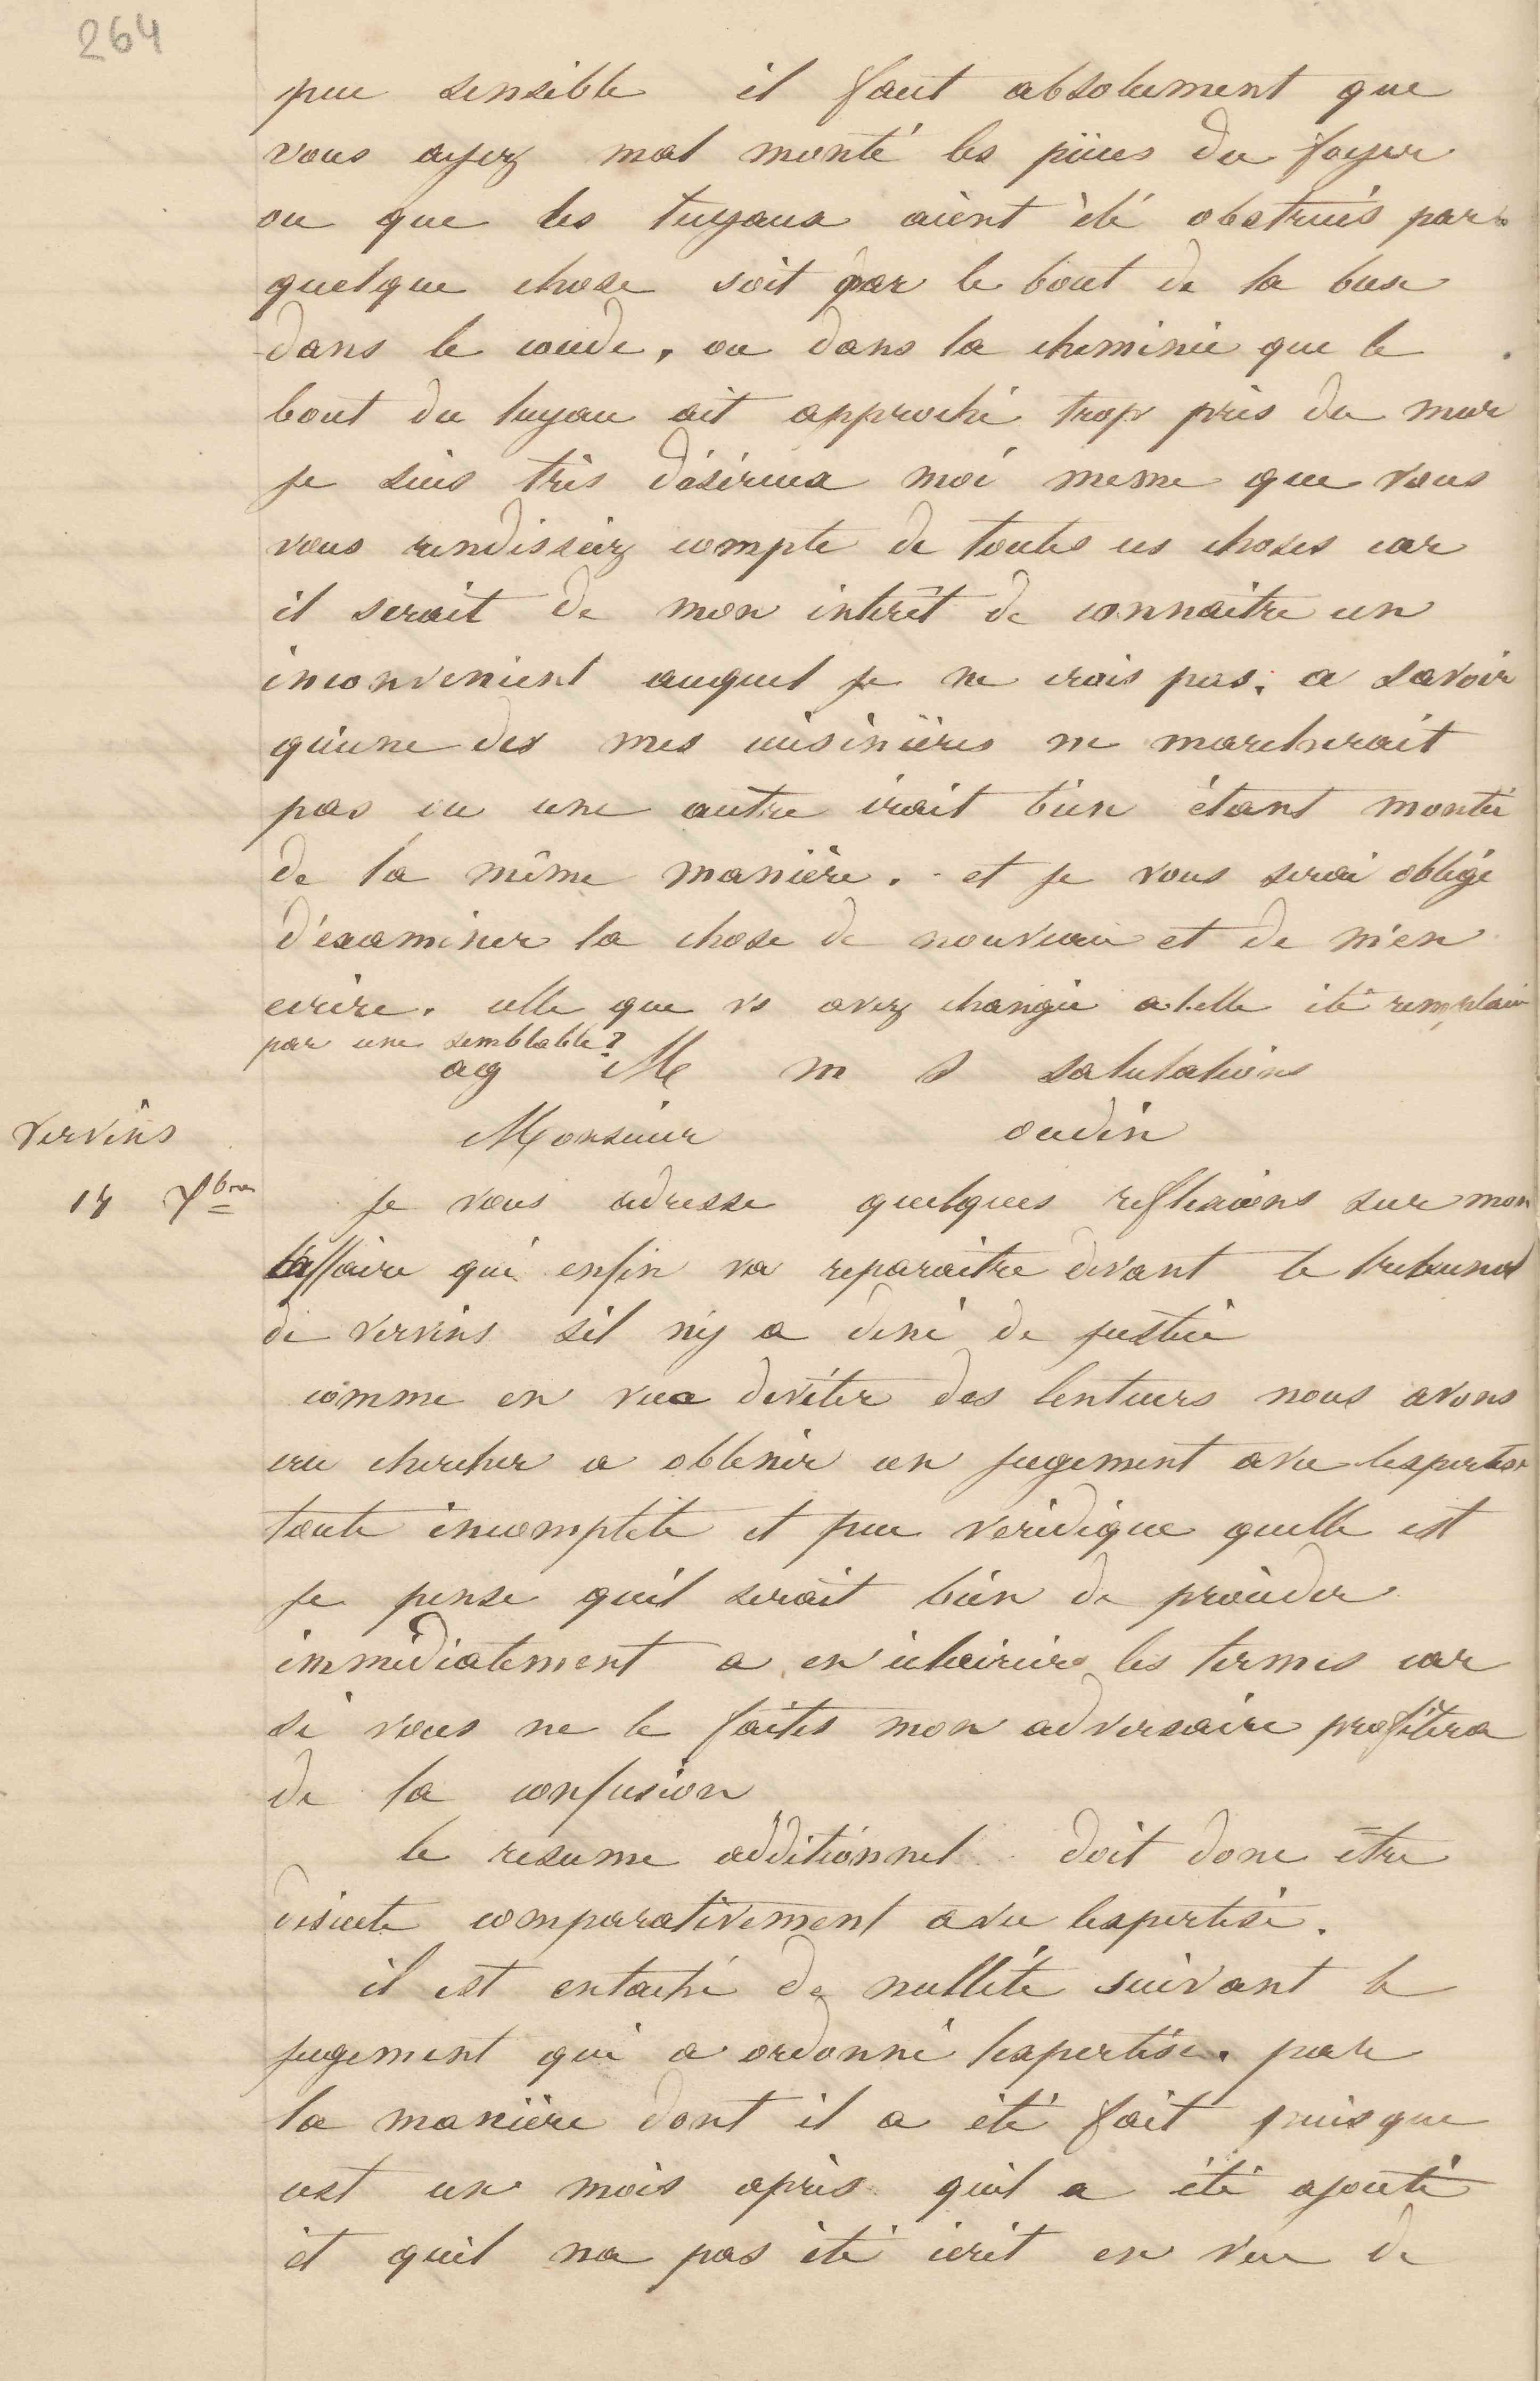 264
peu sensible il faut absolument que
vous ayez mal monté les pièces du foyer
ou que les tuyaux aient été obstrués par
quelque chose soit par le bout de la buse
dans le coude, ou dans la cheminée que le
bout du tuyau ait approché trop près du mur
je suis très désireux moi meme que vous
vous rendissiez compte de toutes ces choses car
il serait de mon intérêt de connaitre un
inconvenient auquel je ne crois pas. a savoir
qu'une des mes cuisinières ne marcherait
pas ou une autre irait bien étant montée
de la même manière. et je vous serai obligé
d'examiner la chose de nouveau et de m'en
ecrire. celle que vs avez changée a t.elle été remplacée
par une semblable?
ag M m s salutations
Vervins
Monsieur oudin
14 Xbre
je vous adresse quelques reflexions sur mon
affaire qui enfin va reparaitre devant le tribunal
de Vervins sil n'y a deni de justice
comme en vue deviter des lenteurs nous avons
cru chercher a obtenir un jugement avec lexpertise
toute incomplete et peu veridique quelle est
je pense quil serait bien de procéder
immédiatement a en éclaircir les termes car
si vous ne le faites mon adversaire profitera
de la confusion
le resume additionnel doit donc être
discute comparativement avec lexpertise.
il est entaché de nullité suivant le
jugement qui a ordonné lexpertise. par
la manière dont il a été fait puisque
cest un mois après quil a été ajouté
et quil na pas été écrit en vue de